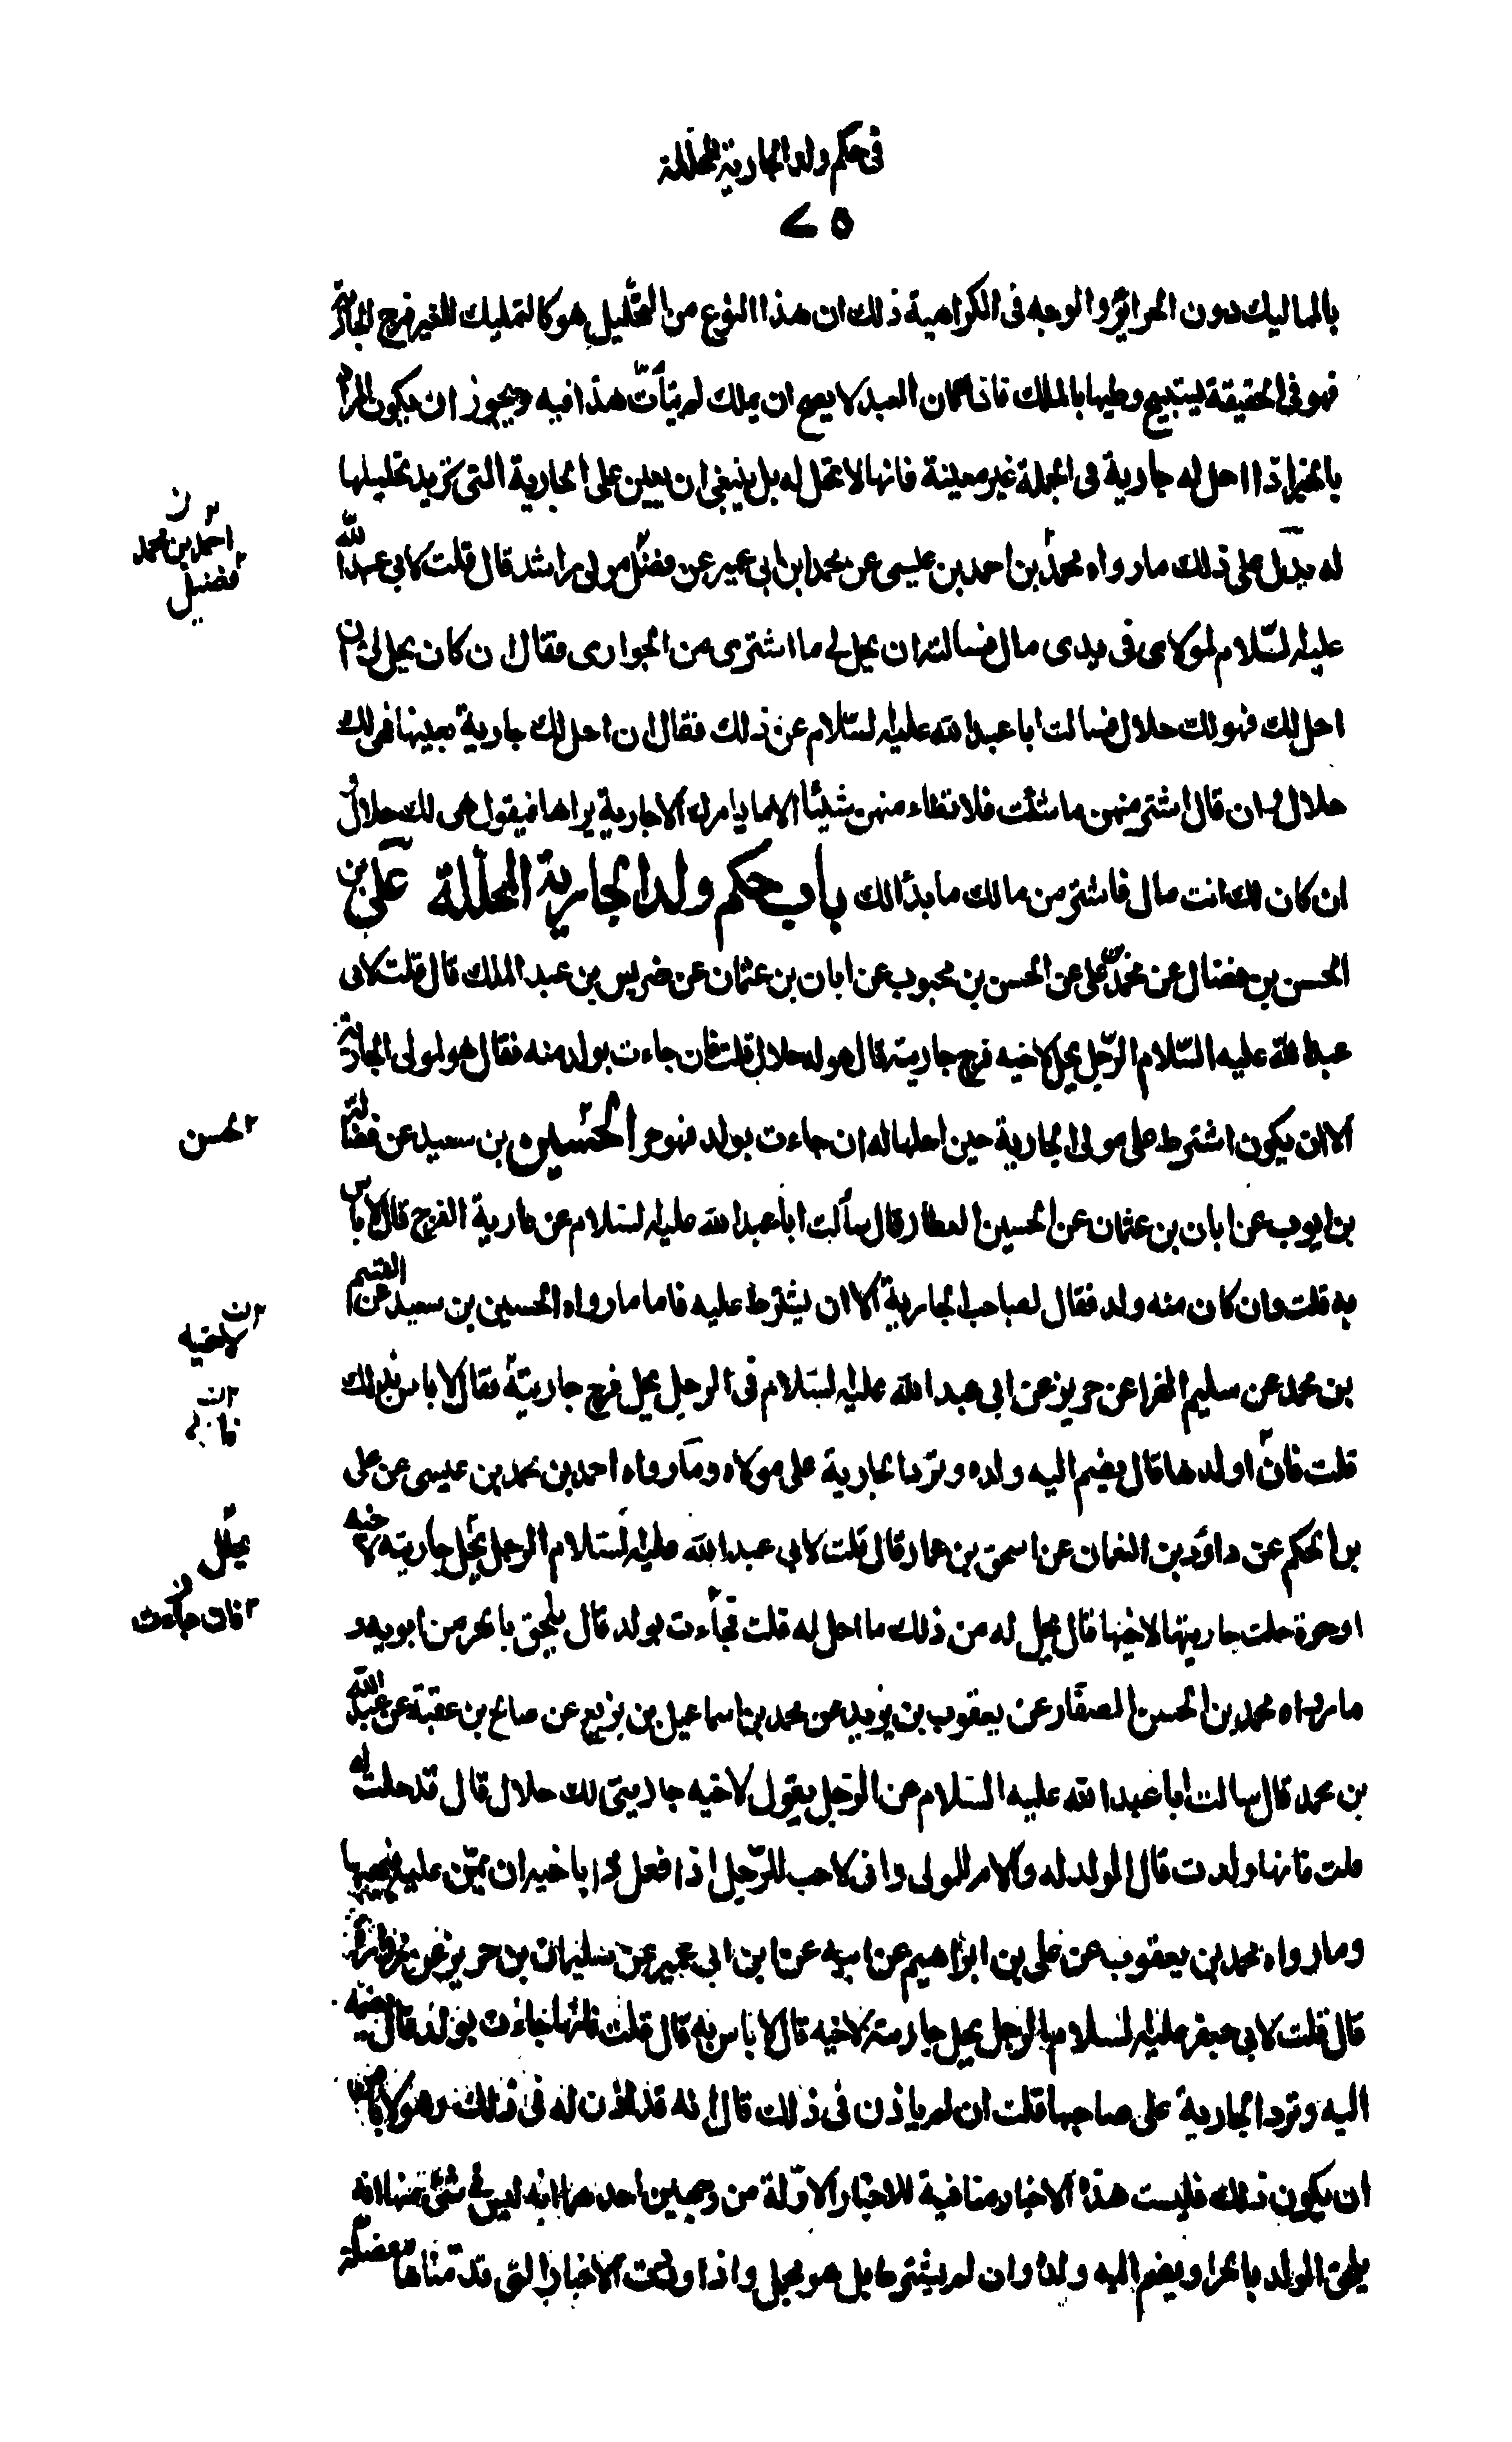 فى حكم ولد الجارية المحللة
٧٥
بالمماليك دون الحرائر والوجه فى الكراهية ذلك ان هذا النوع من التحليل هو كالتمليك للغير فرج الجارية
فهو فى الحقيقة يستبيح وطيها بالملك فاذا كان العبد لا يصح ان يملك لم يتأت هذا فيه ويجوز ان يكون المراد
بالخبر اذا احل له جارية فى الجملة غير معينة فانها لا تحل له بل ينبغى ان يعين على الجارية التى تريد تحليلها
له يدل على ذلك ما رواه محمد بن احمد بن عيسى عن محمد ابن ابى عمير عن فضل مولى راشد قال قلت لابى عبد الله
عليه السلام لمولاى فى يدى مال فسالته ان يحل لى ما اشترى من الجوارى فقال ان كان يحل لى ان
احل لك فهو لك حلال فسالت ابا عبد الله عليه السلام عن ذلك فقال ان احل لك جارية بعينها فهى لك
حلال وان قال اشتر منهن ما شئت فلا تطاء منهن شيئا الا ما يامرك الا جارية يراها فيقول هى لك حلال
ان كان لك انت مال فاشتر من مالك ما بدا لك باب حكم ولد الجارية المحللة على بن
الحسن بن فضال عن محمد بن على عن الحسن بن محبوب عن ابان بن عثمان عن ضريس بن عبد الملك قال قلت لابى
عبد الله عليه السلام الرجل يحل لاخيه فرج جاريته قال هو له حلال قلت فان جاءت بولد منه فقال هو لمولى الجارية
الا ان يكون اشترط على مولى الجارية حين احلها له ان جاءت بولد فهو حر الحسين بن سعيد عن فضالة
بن ايوب عن ابان بن عثمان عن الحسين العطار قال سألت ابا عبد الله عليه السلام عن عارية الفرج قال لا باس
به قلت وان كان منه ولد فقال لصاحب الجارية الا ان يشترط عليه فاما ما رواه الحسين بن سعيد عن القسم
بن محمد عن سليم الفرا عن حريز عن ابى عبد الله عليه السلام فى الرجل يحل فرج جاريته فقال لا باس بذلك
قلت فان اولدها قال يضم اليه ولده وترد الجارية على مولاه وما رواه احمد بن محمد بن عيسى عن على
بن الحكم عن داود بن النعمان عن اسحق بن عمار قال قلت لابى عبد الله عليه السلام الرجل يحل جاريته لاخيه
او حرة حلت جاريتها لاخيها قال يحل له من ذلك ما احل له قلت فجاءت بولد قال يلحق بالحر من ابويه و
ما رواه محمد بن الحسن الصفار عن يعقوب بن يزيد عن محمد بن اسماعيل بن بزيع عن صالح بن عقبة عن عبد الله
بن محمد قال سالت ابا عبد الله عليه السلام عن الرجل يقول لاخيه جاريتى لك حلال قال قد حلت له
قلت فانها ولدت قال الولد له والامر للمولى وانى لاحب للرجل اذا فعل ذا باخيه ان يمن عليه فيهبها
وما رواه محمد بن يعقوب عن على بن ابراهيم عن ابيه عن ابن ابى عمير عن سليمان بن حريز عن زرارة
قال قلت لابى جعفر عليه السلام الرجل يحل جاريته لاخيه قال لا باس به قال قلت فانها جاءت بولد قال يضمه
اليه وترد الجارية على صاحبها قلت ان لم ياذن فى ذلك قال انه قد اذن له فى ذلك وهو لا يأمن
ان يكون ذلك فليست هذه الاخبار منافية للاخبار الاولة من وجهين احدهما انه ليس فى شئ منها انه
يلحق الولد بالحر او يضم اليه ولده وان لم يشترط بل هو مجمل واذا وردت الاخبار التى قدمناها مفصلة
ن
احمد بن محمد
فضيل
الحسن
ن
لاخيه
ن
يحلل
ن
فان جاءت